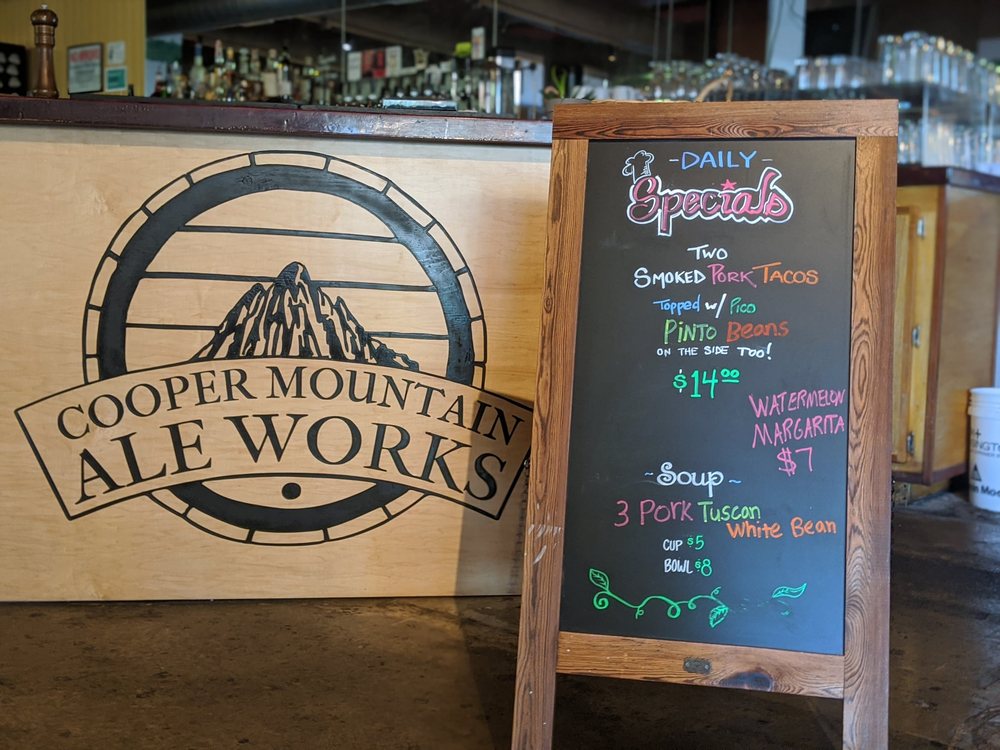 COOPER MOUNTAIN
ALE WORKS
-DAILY-
Specials
TWO
SMOKED PORK TACOS
Topped w/ Pico
PINTO Beans
ON THE SIDE TOO!
$14.00
WATERMELON
MARGARITA
$7
~Soup~
3 Pork Tuscan
White Bean
CUP $5
BOWL $8